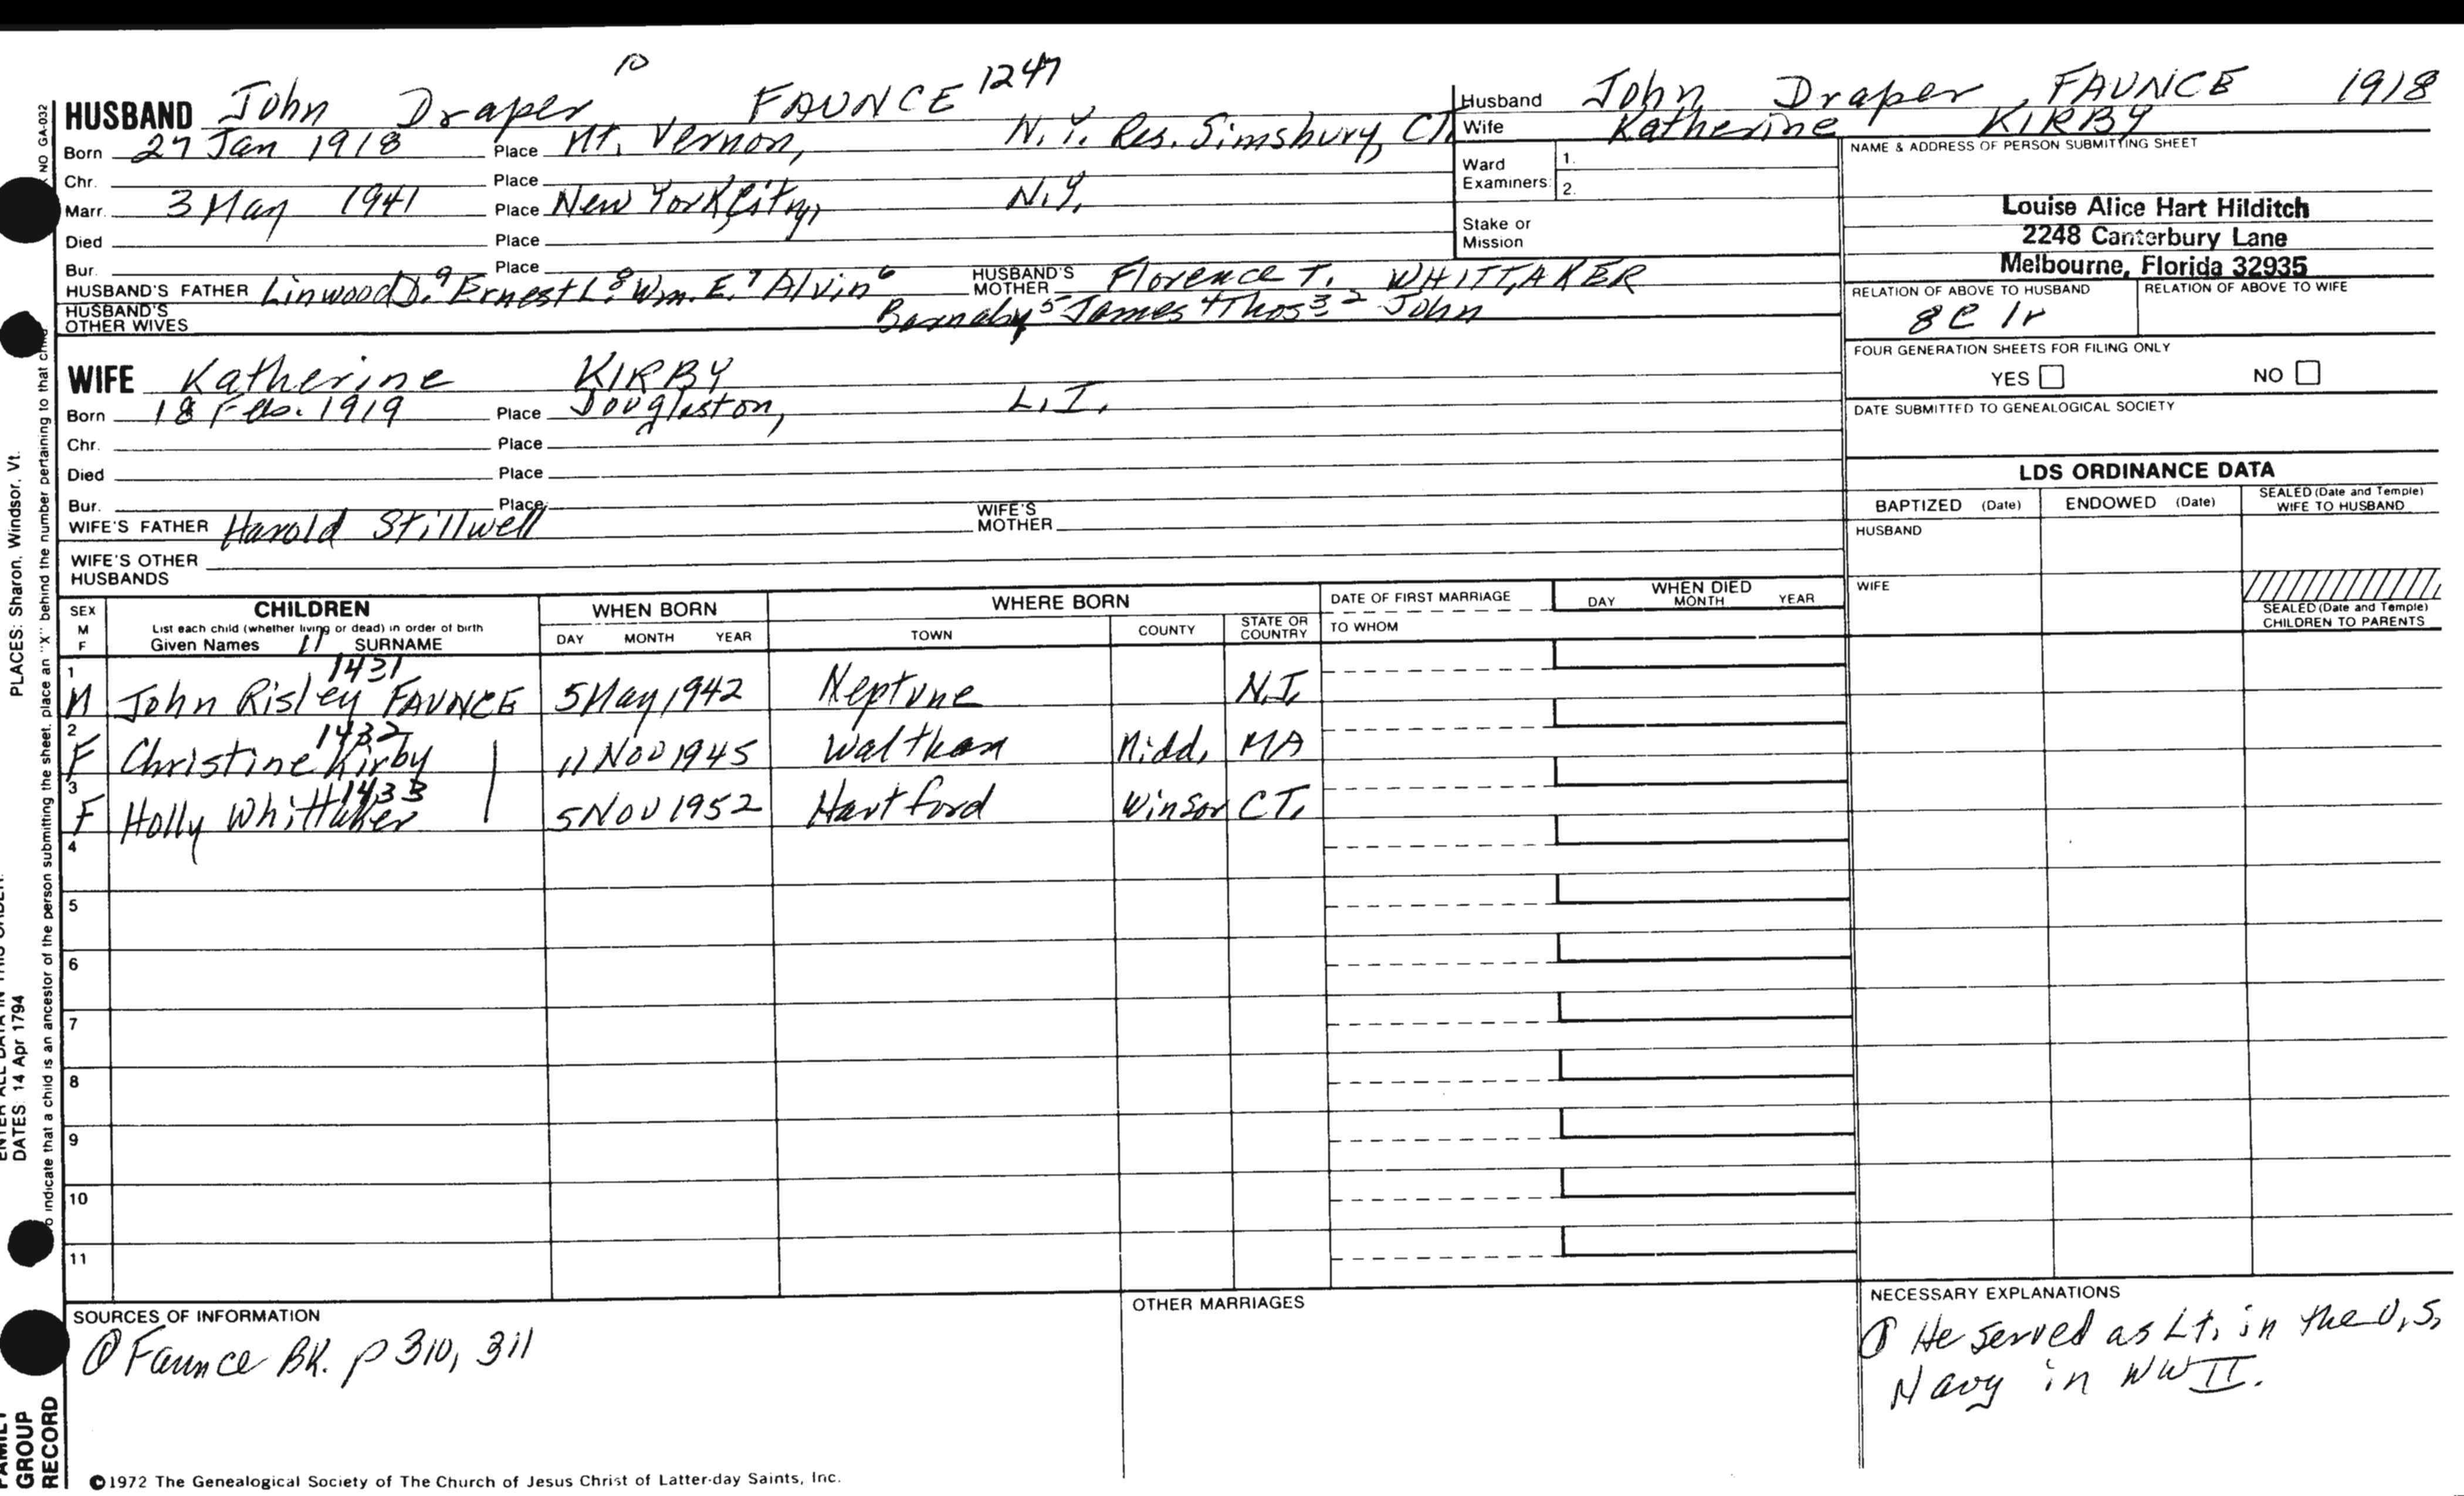 HUSBAND John Draper 10 FAUNCE 1247
Born 27 Jan 1918 Place Mt. Vernon, N.Y. Res. Simsbury, CT.
Chr. Place
Marr. 3 May 1941 Place New York City, N.Y.
Died Place
Bur. Place
HUSBAND'S FATHER Linwood D.9 Ernest L.8 Wm. E.7 Alvin6 HUSBAND'S MOTHER Florence T. WHITTAKER
HUSBAND'S OTHER WIVES Barnaby5 James4 Thos3 2 John
Husband John Draper FAUNCE 1918
Wife Katherine KIRBY
Ward Examiners: 1.
2.
Stake or Mission
NAME & ADDRESS OF PERSON SUBMITTING SHEET
Louise Alice Hart Hilditch
2248 Canterbury Lane
Melbourne, Florida 32935
RELATION OF ABOVE TO HUSBAND RELATION OF ABOVE TO WIFE
8C 1r
FOUR GENERATION SHEETS FOR FILING ONLY
YES NO
DATE SUBMITTED TO GENEALOGICAL SOCIETY
WIFE Katherine KIRBY
Born 18 Feb. 1919 Place Douglaston, L.I.
Chr. Place
Died Place
Bur. Place
WIFE'S FATHER Harold Stillwell WIFE'S MOTHER
WIFE'S OTHER HUSBANDS
LDS ORDINANCE DATA
BAPTIZED (Date) ENDOWED (Date) SEALED (Date and Temple) WIFE TO HUSBAND
HUSBAND
WIFE
SEALED (Date and Temple) CHILDREN TO PARENTS
SEX M F CHILDREN WHEN BORN WHERE BORN DATE OF FIRST MARRIAGE WHEN DIED
List each child (whether living or dead) in order of birth
Given Names 11 SURNAME DAY MONTH YEAR TOWN COUNTY STATE OR COUNTRY TO WHOM DAY MONTH YEAR
1 1431
M John Risley FAUNCE 5 May 1942 Neptune N.J.
2 1432
F Christine Kirby 11 Nov 1945 Waltham Midd. MA
3 1433
F Holly Whittaker 5 Nov 1952 Hartford Winsor CT.
4
5
6
7
8
9
10
11
SOURCES OF INFORMATION
① Faunce BK. p 310, 311
OTHER MARRIAGES
NECESSARY EXPLANATIONS
① He served as Lt. in the U.S.
Navy in WW II.
©1972 The Genealogical Society of The Church of Jesus Christ of Latter-day Saints, Inc.
NO GA-032
indicate that a child is an ancestor of the person submitting the sheet, place an "X" behind the number pertaining to that child
PLACES: Sharon, Windsor, Vt.
ENTER ALL DATA IN THIS ORDER:
DATES: 14 Apr 1794
FAMILY
GROUP
RECORD